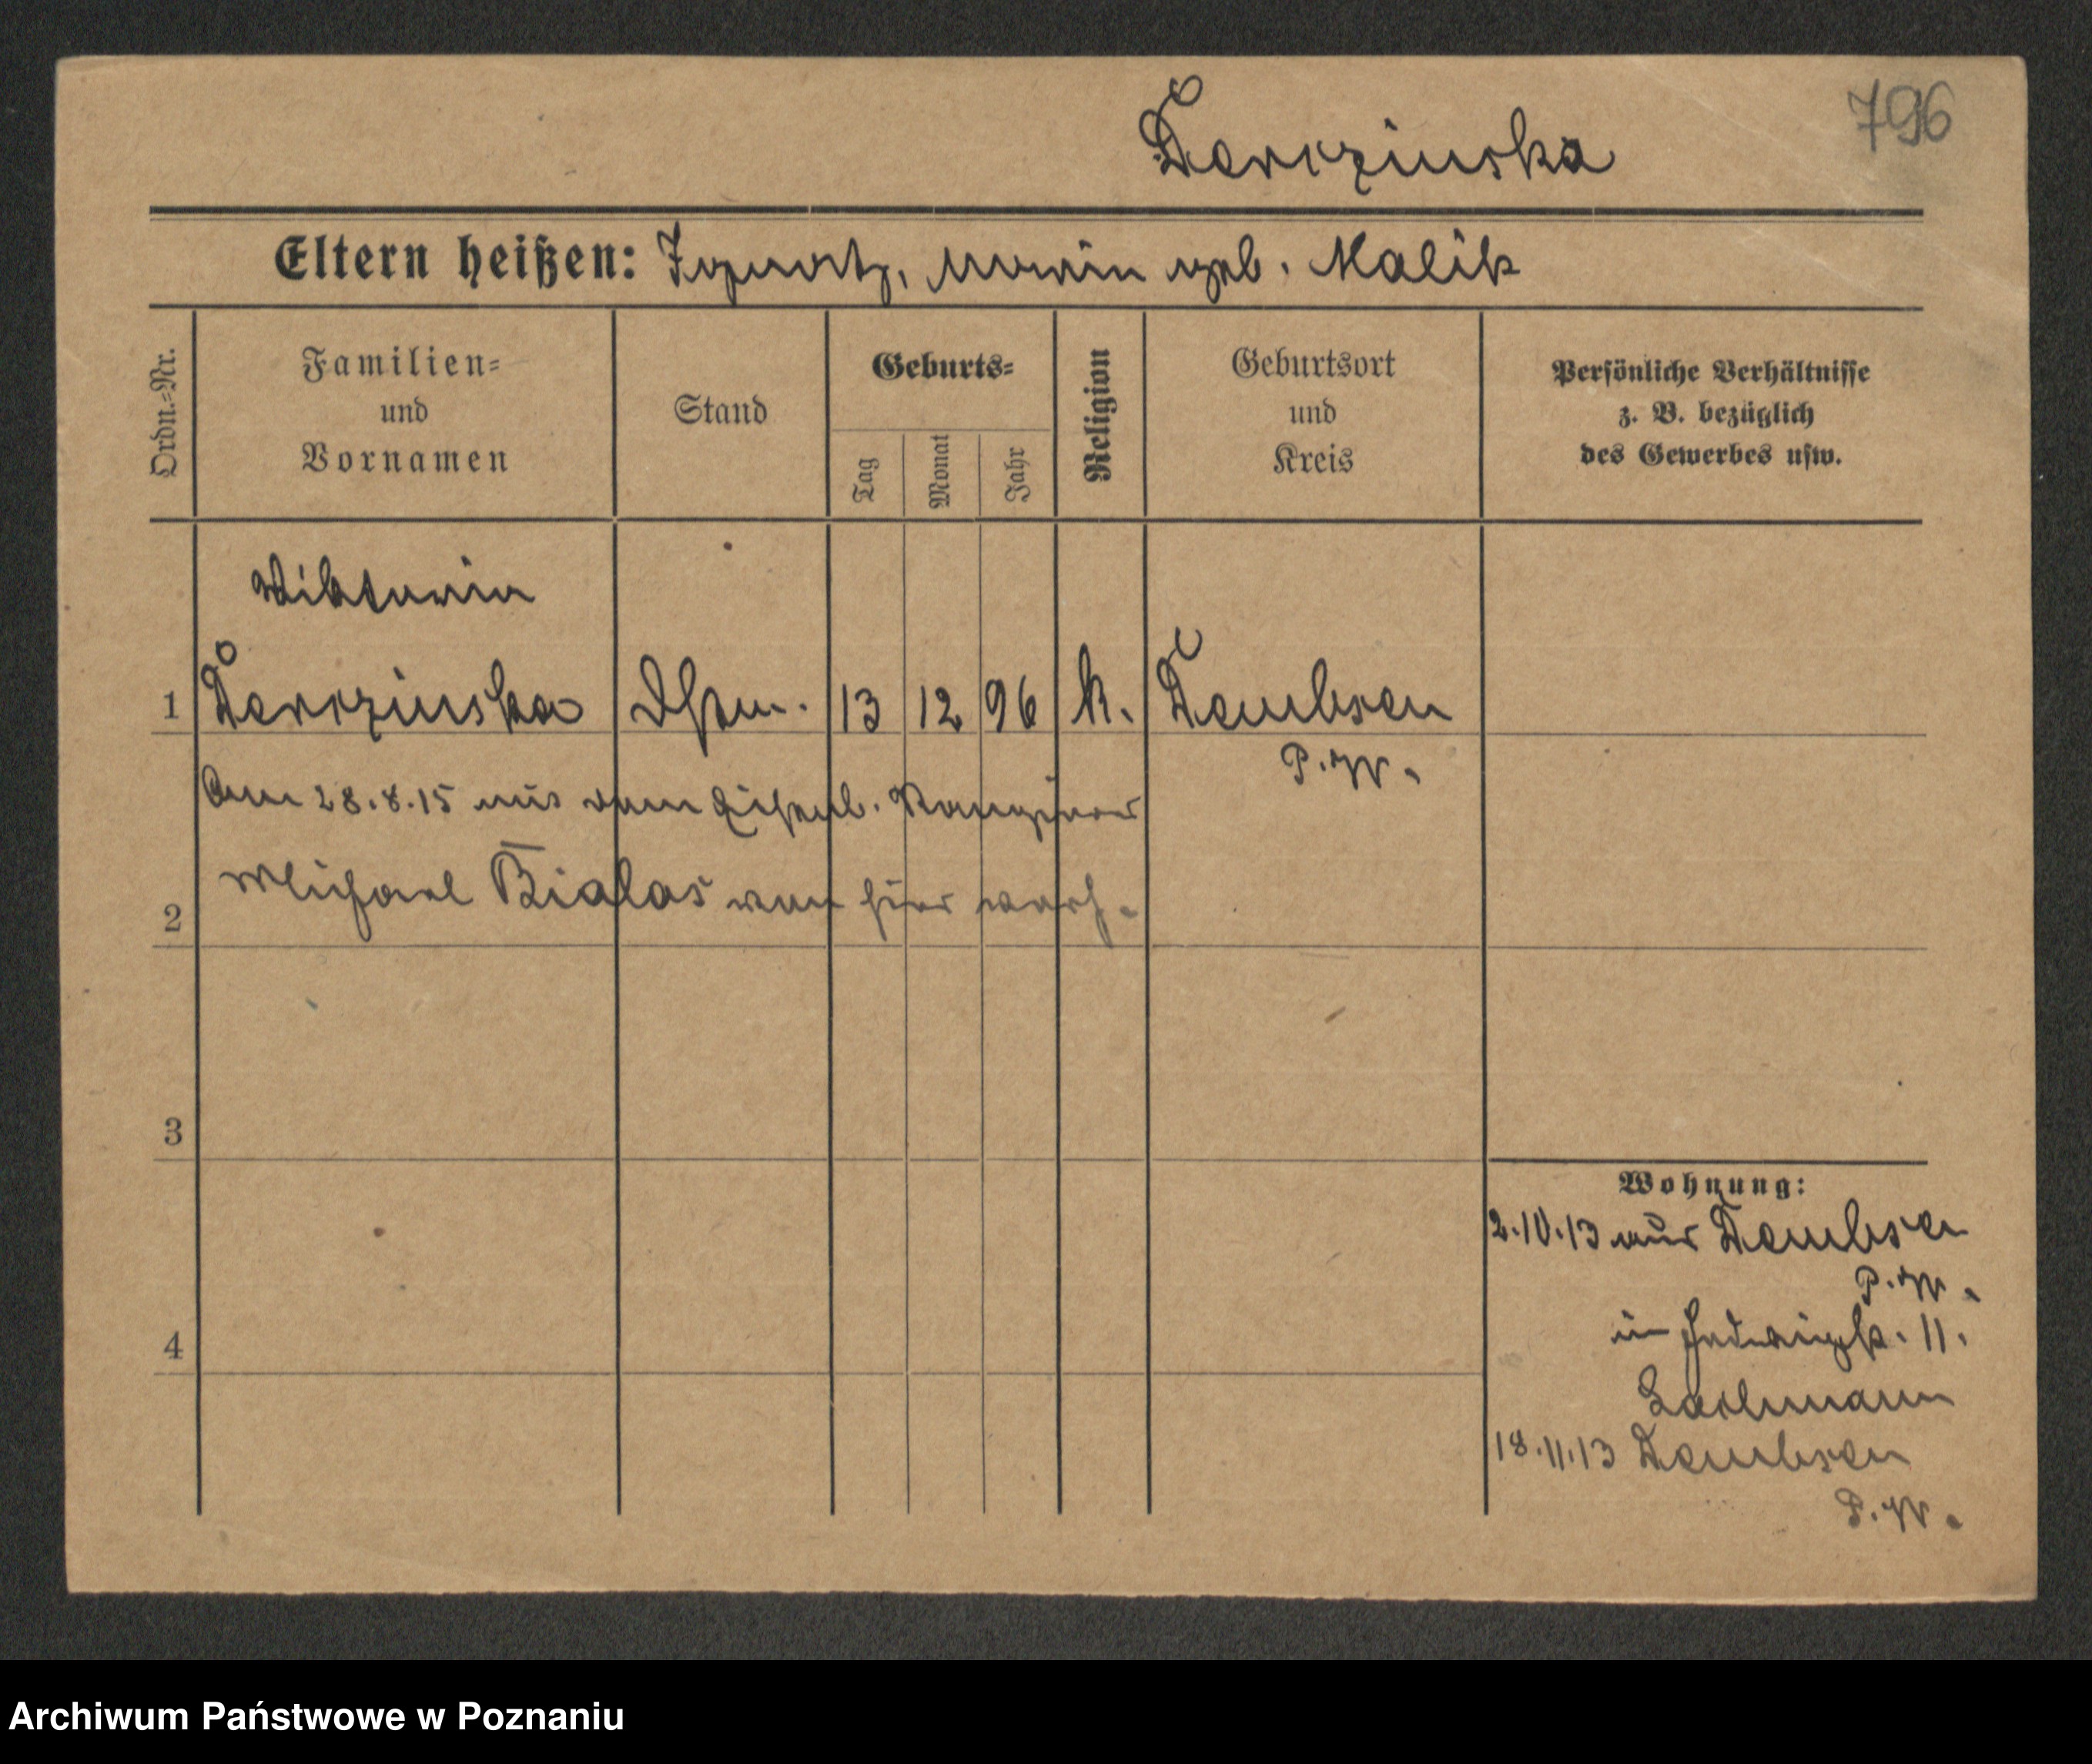 796
Derczinska
Eltern heißen: Ignatz, Maria geb. Malik
Ordn.-Nr.
Familien-
und
Vornamen
Stand
Geburts-
Tag
Monat
Jahr
Religion
Geburtsort
und
Kreis
Persönliche Verhältnisse
z. B. bezüglich
des Gewerbes usw.
Wiktoria
1 Derczinska 13 12 96 k. Dembsen
P.W.
Am 28.8.15 mit dem Eisenb. Rangierer
2 Michael Bialas von hier verh.
3
4
Wohnung:
2.10.13 aus Dembsen
P.W.
in 11.
Lachmann
18.11.13 Dembsen
P.W.
Archiwum Państwowe w Poznaniu